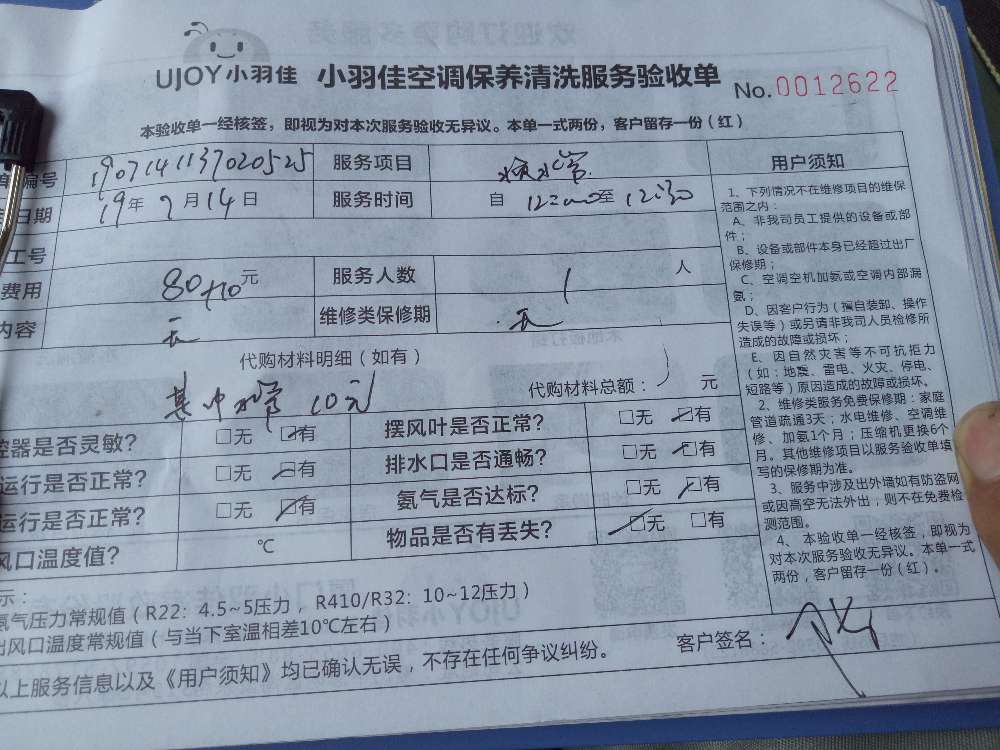 UJOY小羽佳 小羽佳空调保养清洗服务验收单 No.0012622
本验收单一经核签，即视为对本次服务验收无异议。本单一式两份，客户留存一份（红）
编号 1907141137020525 服务项目 换水管
日期 19年7月14日 服务时间 自 12:00至 12:30
工号
费用 80+10元 服务人数 1 人
内容 无 维修类保修期 无
代购材料明细（如有）
其中水管 10元 代购材料总额： 元
控器是否灵敏？ □无 ☑有 摆风叶是否正常？ □无 ☑有
运行是否正常？ □无 ☑有 排水口是否通畅？ □无 ☑有
运行是否正常？ □无 ☑有 氨气是否达标？ □无 ☑有
风口温度值？ ℃ 物品是否有丢失？ ☑无 □有
示：
氨气压力常规值（R22：4.5~5压力，R410/R32：10~12压力）
出风口温度常规值（与当下室温相差10℃左右）
以上服务信息以及《用户须知》均已确认无误，不存在任何争议纠纷。
客户签名：
用户须知
1、下列情况不在维修项目的维保
范围之内：
A、非我司员工提供的设备或部
件；
B、设备或部件本身已经超过出厂
保修期；
C、空调空机加氨或空调内部漏
氨；
D、因客户行为（擅自装卸、操作
失误等）或另请非我司人员检修所
造成的故障或损坏；
E、因自然灾害等不可抗拒力
（如：地震、雷电、火灾、停电、
短路等）原因造成的故障或损坏。
2、维修类服务免费保修期：家庭
管道疏通3天；水电维修、空调维
修、加氨1个月；压缩机更换6个
月。其他维修项目以服务验收单填
写的保修期为准。
3、服务中涉及出外墙如有防盗网
或因高空无法外出，则不在免费检
测范围。
4、本验收单一经核签，即视为
对本次服务验收无异议。本单一式
两份，客户留存一份（红）。